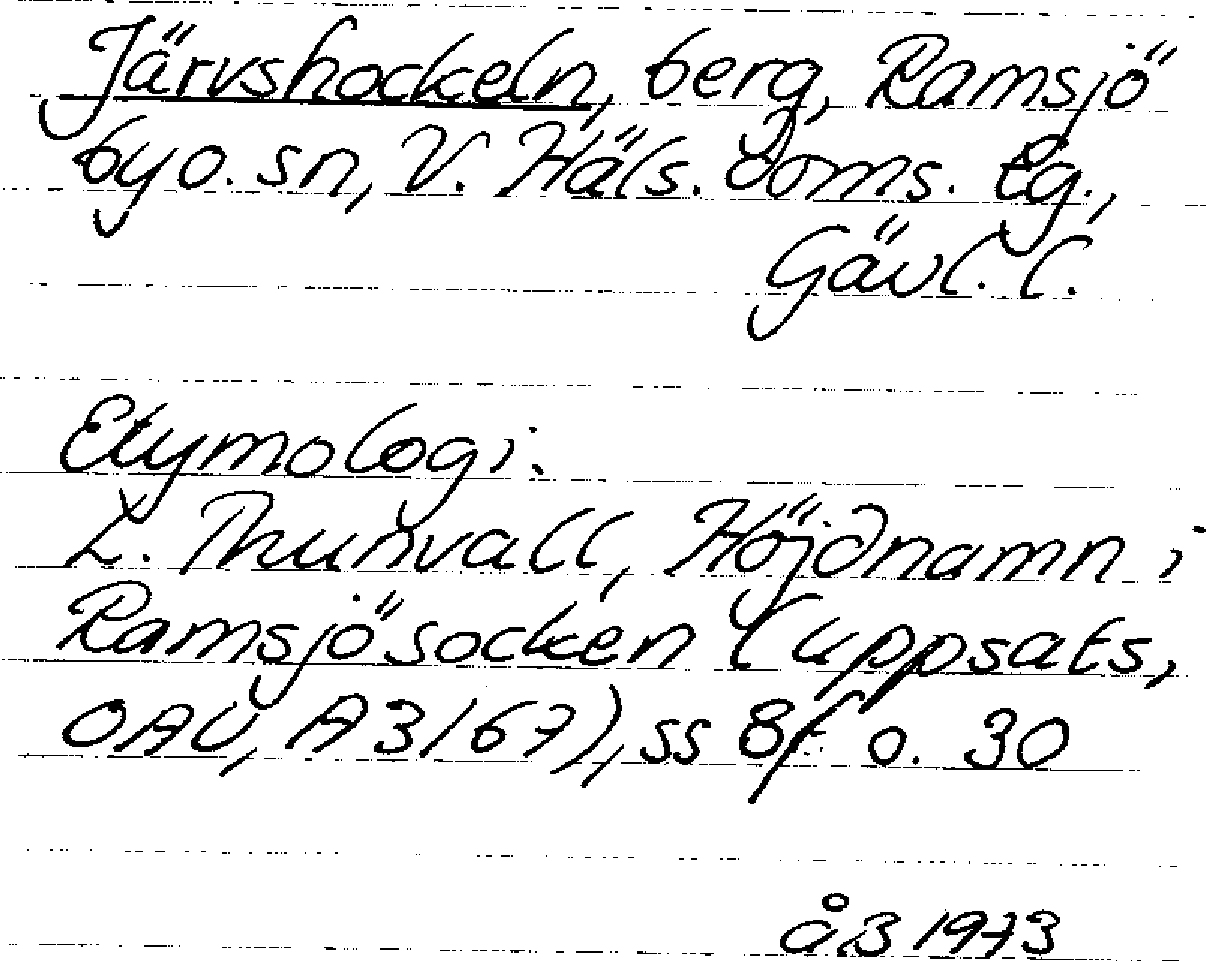 Järvshockeln, berg, Ramsjö
by o. sn, V. Häls. doms. tg.,
Gävl. l.
Etymologi:
L. Thunvall, Höjdnamn i
Ramsjö socken (uppsats,
OAU, A3167), ss 8f o. 30
åB 1973